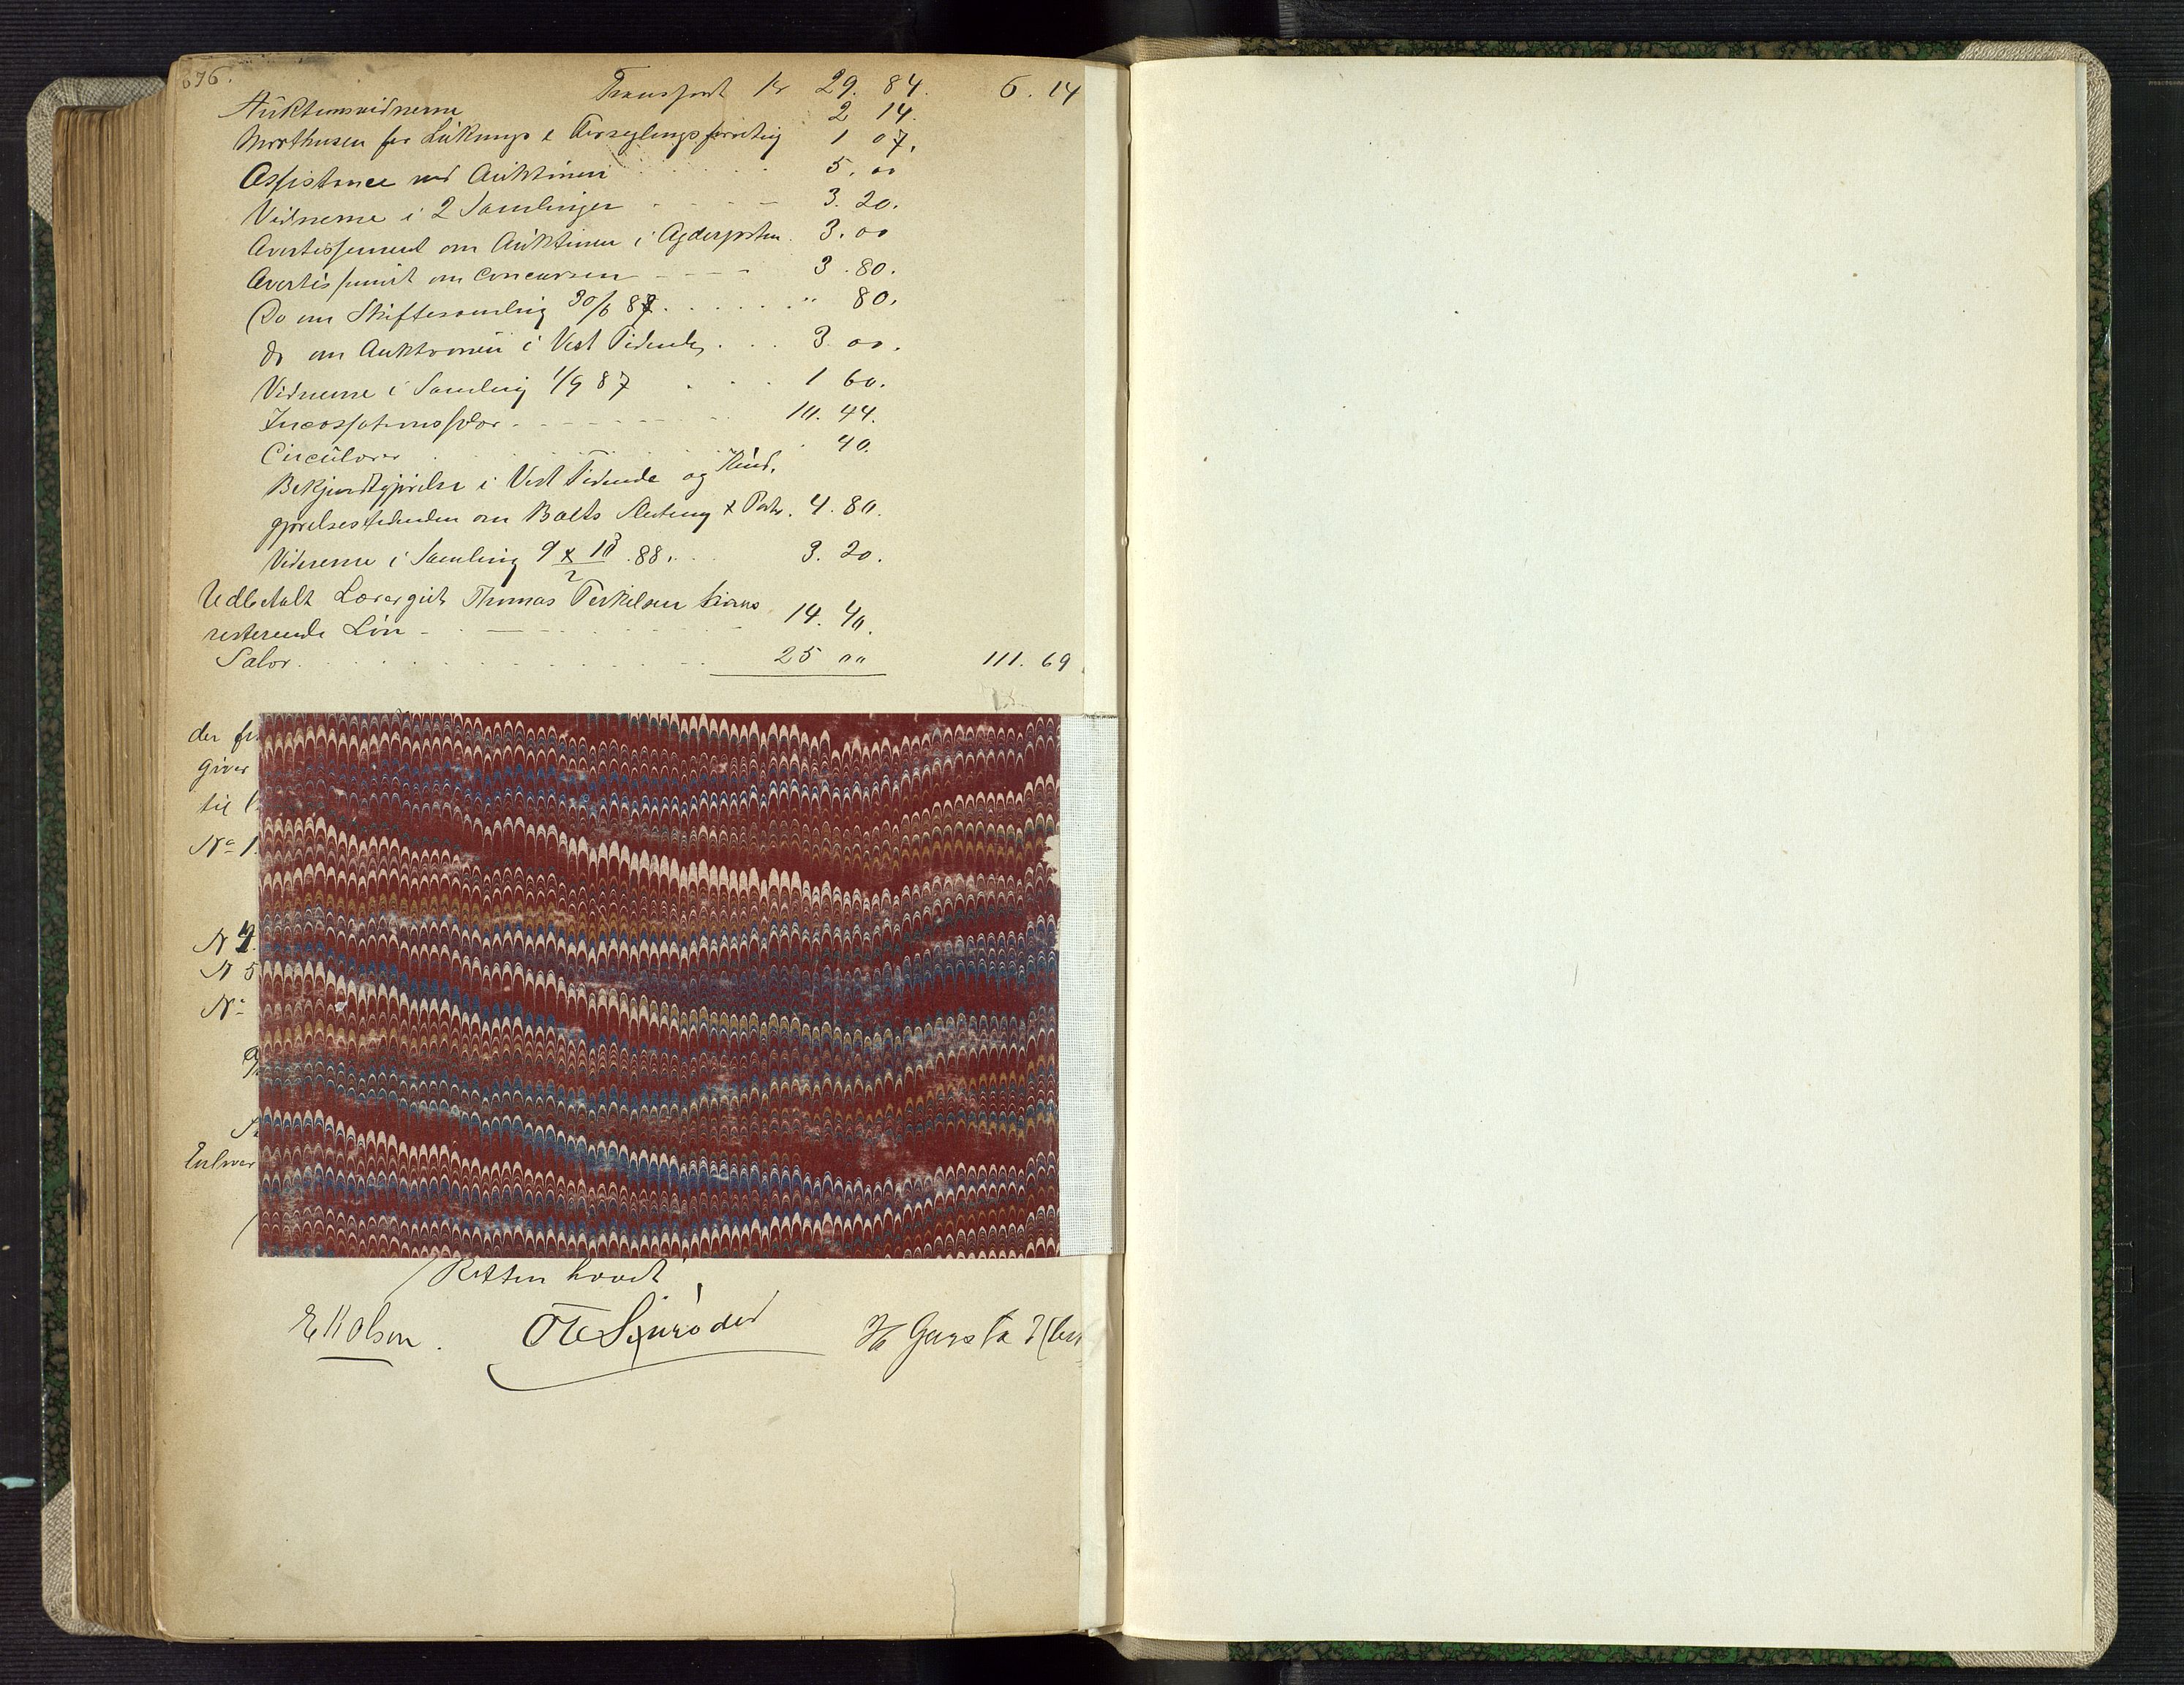 676.
Transport Kr 29. 84. 6. 14
Auktionsvidnerne 2 14.
for Luknings & Forseglingsforretnig 1 07.
Assistance ved Auktionen 5. 00
Vidnerne i 2 Samlinger 3. 20.
Avertissement om Auktionen i Agderposten. 3. 00
Avertissement om Concursen 3. 80.
Do om Skiftesamling 30/6 87. " 80.
do om Auktionen i Vest Tidende 3 00.
Vidnerne i Samling 1/9 87 1 60.
Incassationssalær 10. 44.
Circulærer 40.
Bekjendtgjørelse i Vest Tidende og Kund.
gjørelsestidenden om Boets Slutning & Porto. 4. 80.
Vidnerne i Samling 9 & 13/2 88. 3. 20.
Udbetalt Læregut Thomas Terkilsen hans
resterende Løn 14. 40.
Salær. 25 00 111. 69
der
Giver
til
No 1.
N 4.
N 5
No
Enhver
Retten hævet
E K Olsen. H Garsta